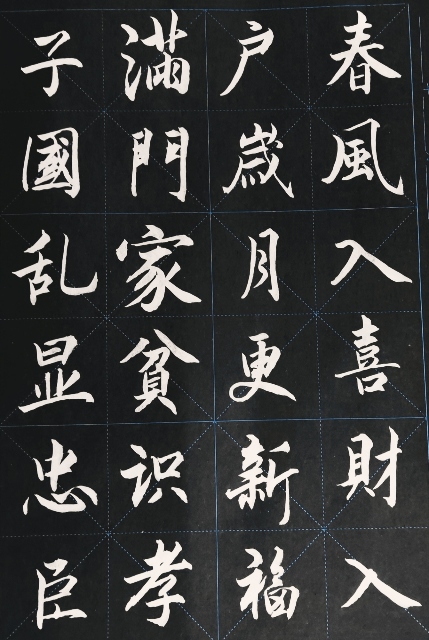 春風入喜財入
户歲月更新福
滿門家貧识孝
子國乱显忠臣